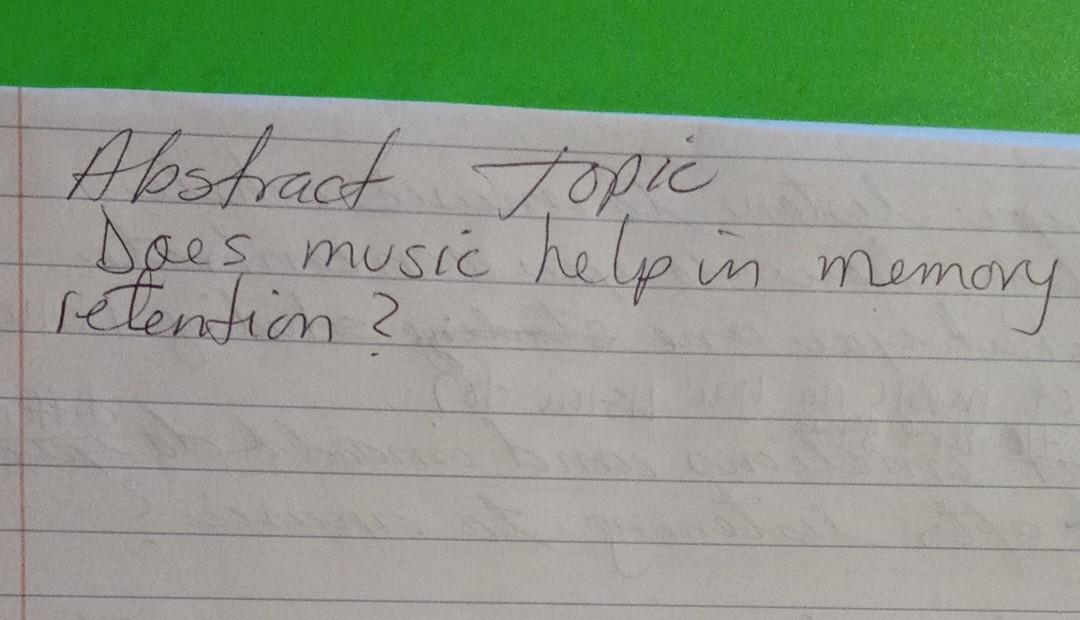 Abstract Topic
Does music help in memory
retention?